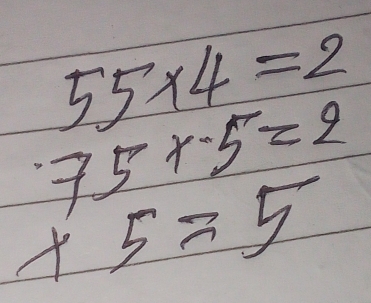 55×4=2
75×5=2
× 5=5